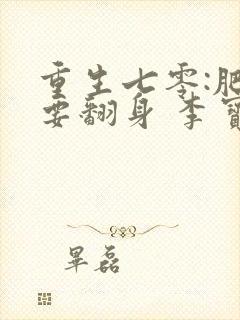 重生七零:肥
要翻身 李寶
畢磊